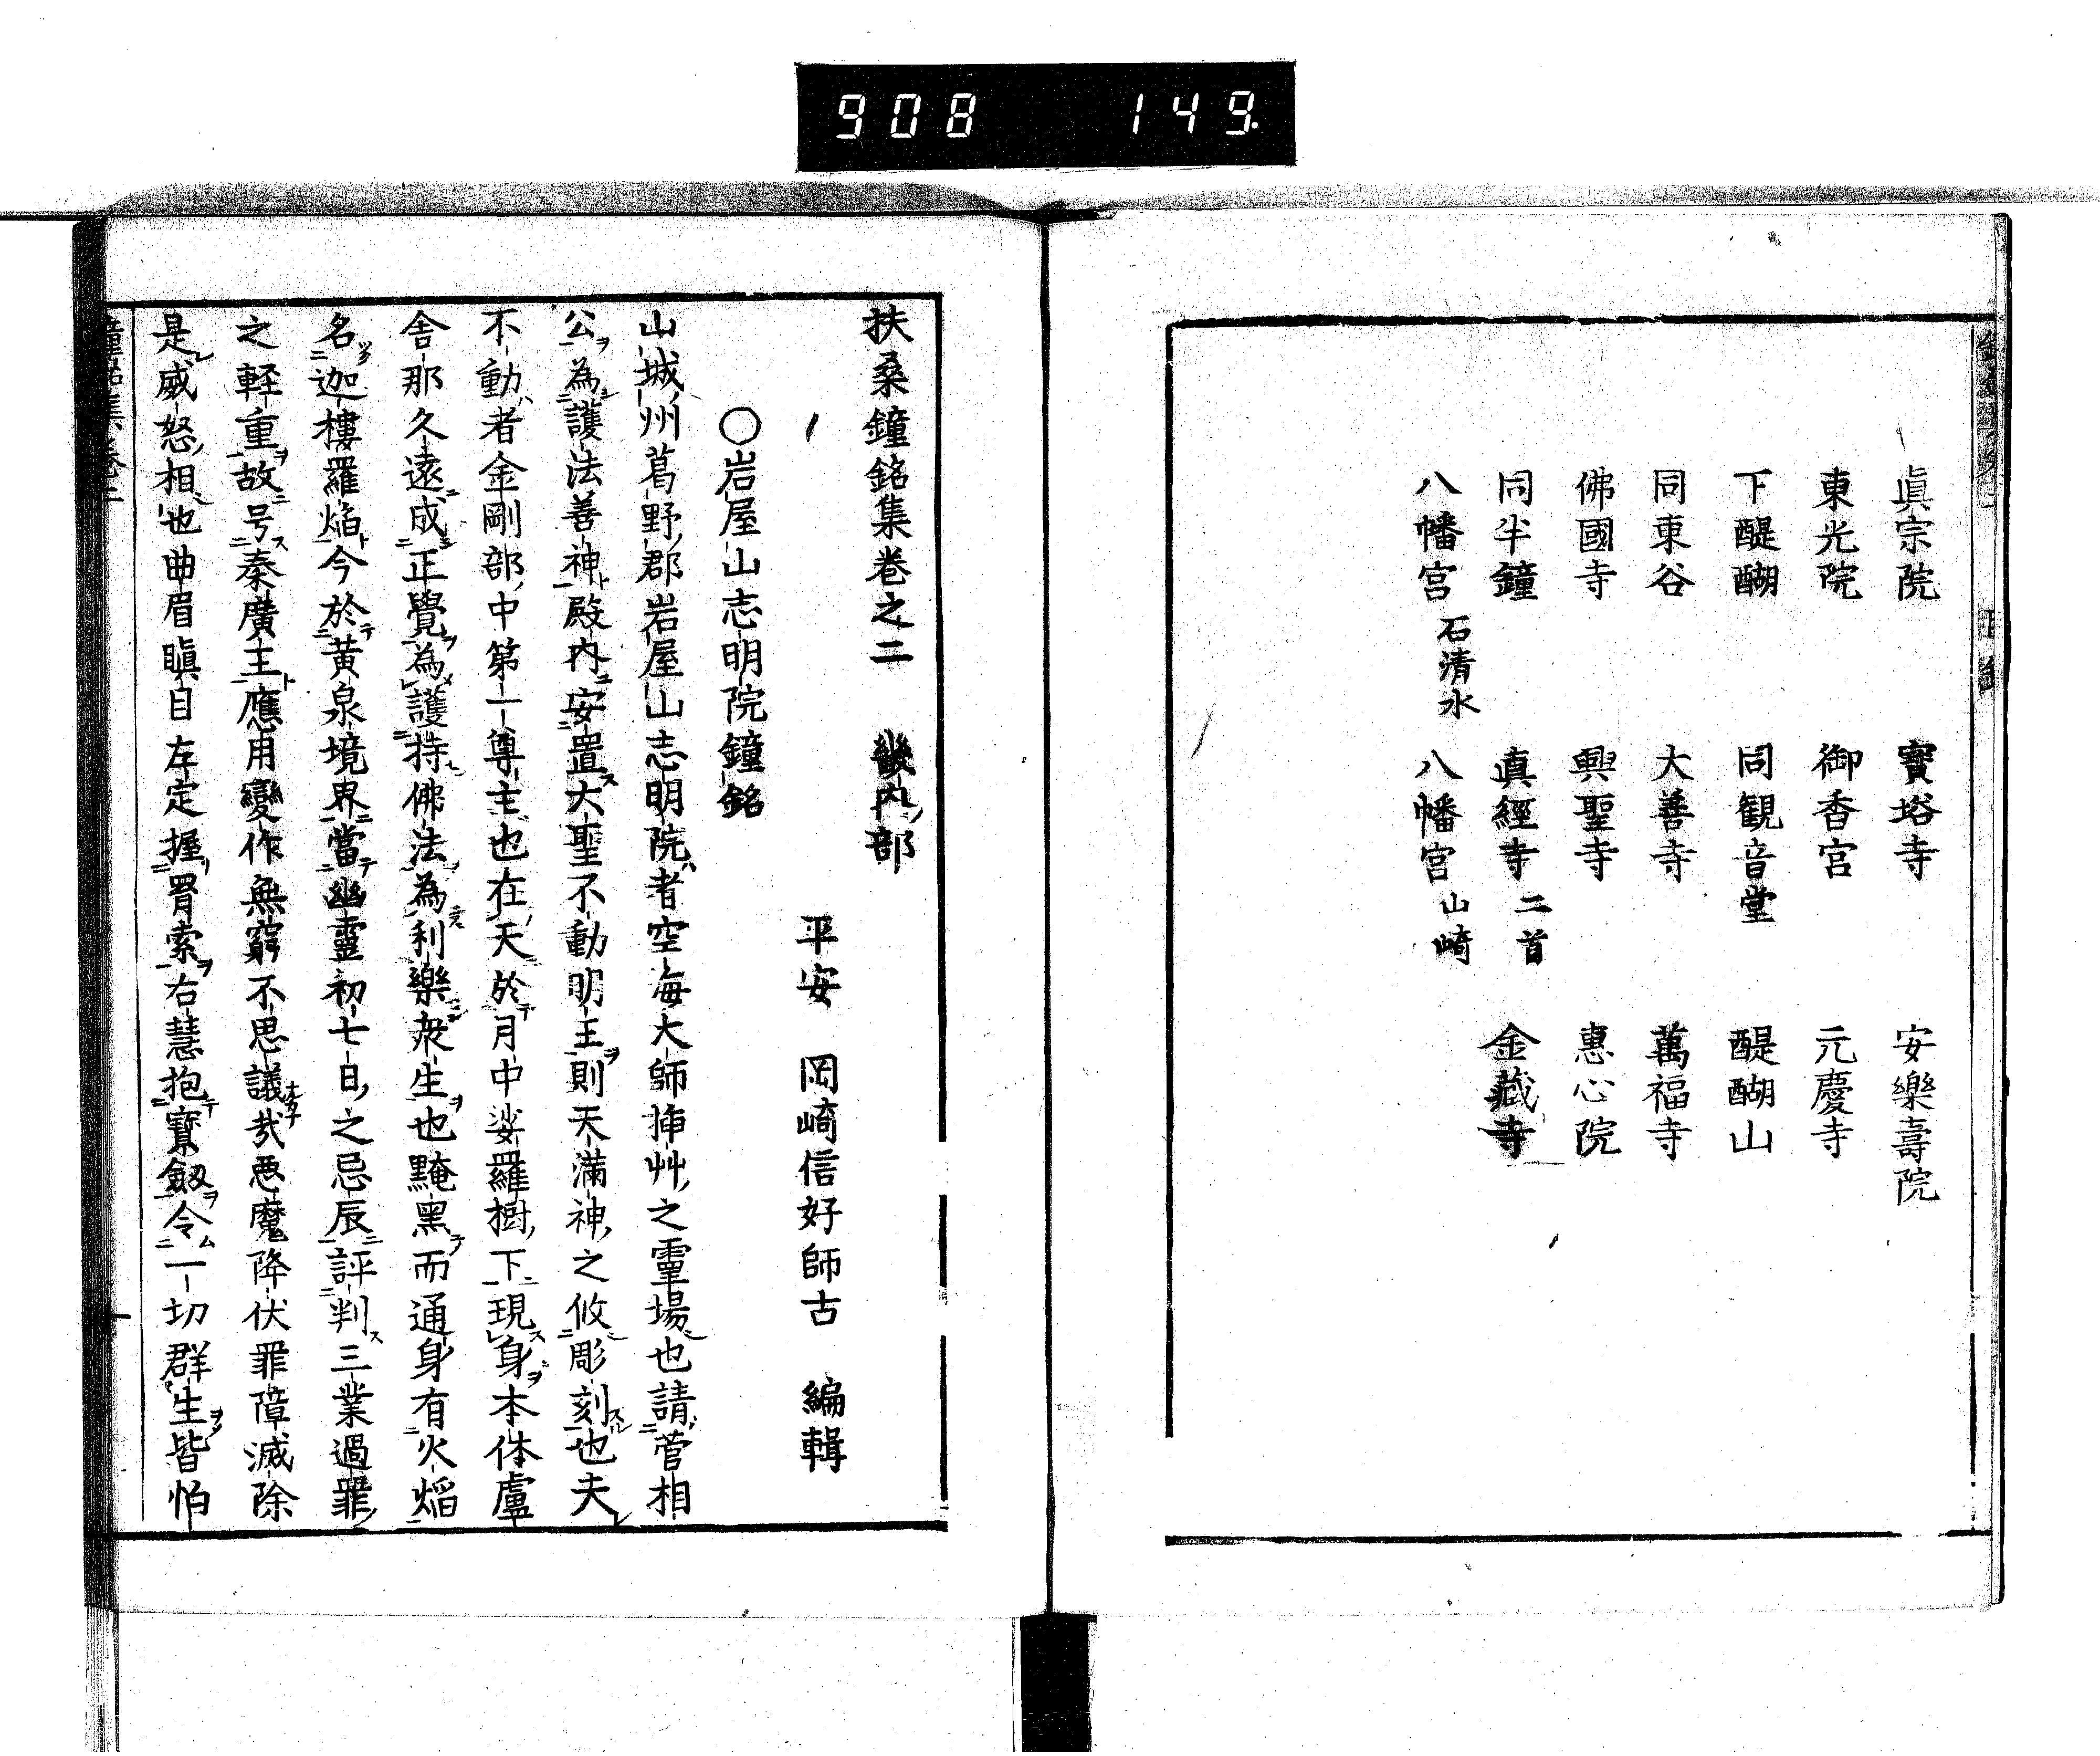 908 149
眞宗院 寳塔寺 安樂壽院
東光院 御香宮 元慶寺
下醍醐 同観音堂 醍醐山
同東谷 大善寺 萬福寺
佛國寺 興聖寺 惠心院
同半鐘 真經寺 二首 金藏寺
八幡宮 石清水 八幡宮 山崎
扶桑鐘銘集巻之二 畿内部
平安 岡崎信好師古 編輯
〇岩屋山志明院鐘銘
山城州葛野郡岩屋山志明院者空海大師挿艸之霊場也請菅相
公為護法善神殿内安置大聖不動明王則天満神之攸彫刻也夫
不動者金剛部中第一尊主也在天於月中娑羅樹下現身本体盧
舎那久遠成正覺為護持佛法為利樂衆生也黤黑而通身有火焔
名迦樓羅焔今於黄泉境界當幽霊初七日之忌辰評判三業過罪
之軽重故号秦廣王應用變作無窮不思議哉悪魔降伏罪障滅除
是威怒相也曲眉瞋目左定握罥索右慧抱寳劔令一切群生皆怕
鐘銘集巻二